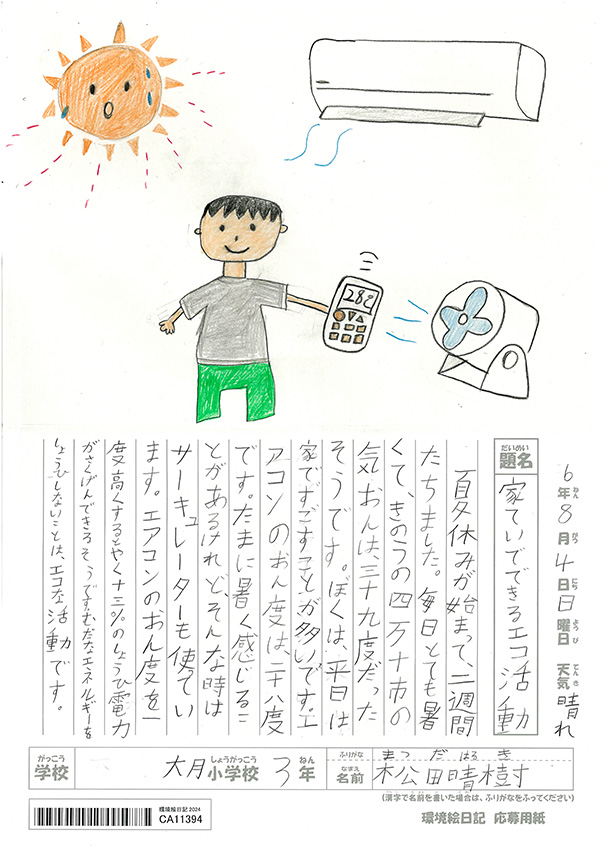 28℃
6年8月4日日曜日 天気 晴れ
ねん がつ にち ようび てんき
だいめい
題名 家ていでできるエコ活動
夏休みが始まって、二週間
たちました。毎日とても暑
くて、きのうの四万十市の
気おんは、三十九度だった
そうです。ぼくは、平日は
家ですごすことが多いです。エ
アコンのおん度は、二十八度
です。たまに暑く感じるこ
とがあるけれど、そんな時は
サーキュレーターも使てい
ます。エアコンのおん度を一
度高くするとやく十三%のしょうひ電力
がさくげんできるそうです。むだなエネルギーを
しょうひしないことは、エコな活動です。
がっこう しょうがっこう ねん ふりがな まつだ はるき
学校 大月小学校 3年 なまえ 名前 松田晴樹
(漢字で名前を書いた場合は、ふりがなをふってください)
環境絵日記 2024
CA11394
環境絵日記 応募用紙